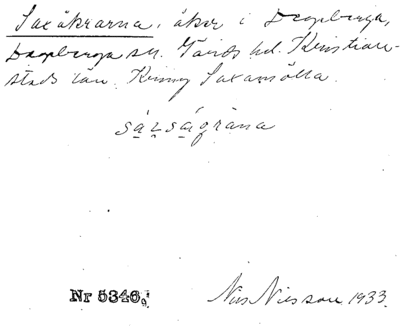 Saxåkrarna, åker i Degeberga,
Degeberga sn. Gärds hd. Kristian-
stads län. Kring Saxamölla.
Nr 5346.
Nils Nilsson 1933.